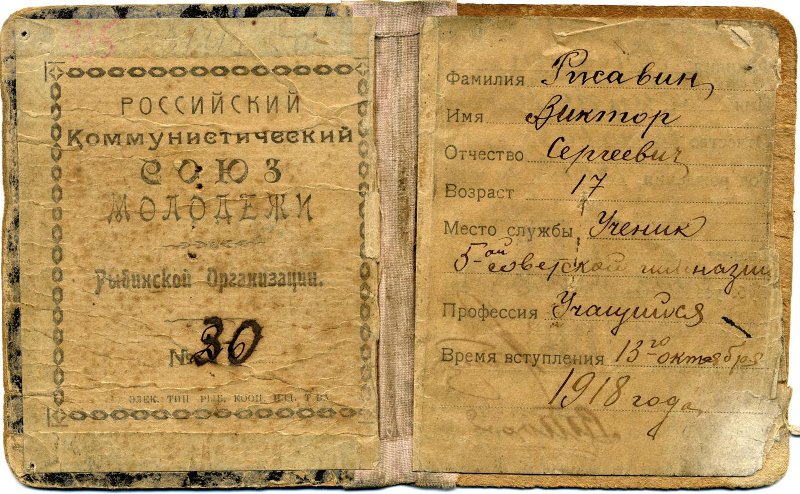 РОССИЙСКИЙ
Коммунистический
СОЮЗ
МОЛОДЕЖИ
Рыбинской Организации.
№ 30
ЭЛЕК. ТИП. РЫБ. КООП. ИЗД. Т-ВА
Фамилия Рысавин
Имя Виктор
Отчество Сергеевич
Возраст 17
Место службы Ученик
5-ой советской гимназии
Профессия Учащийся
Время вступления 13-го октября
1918 года